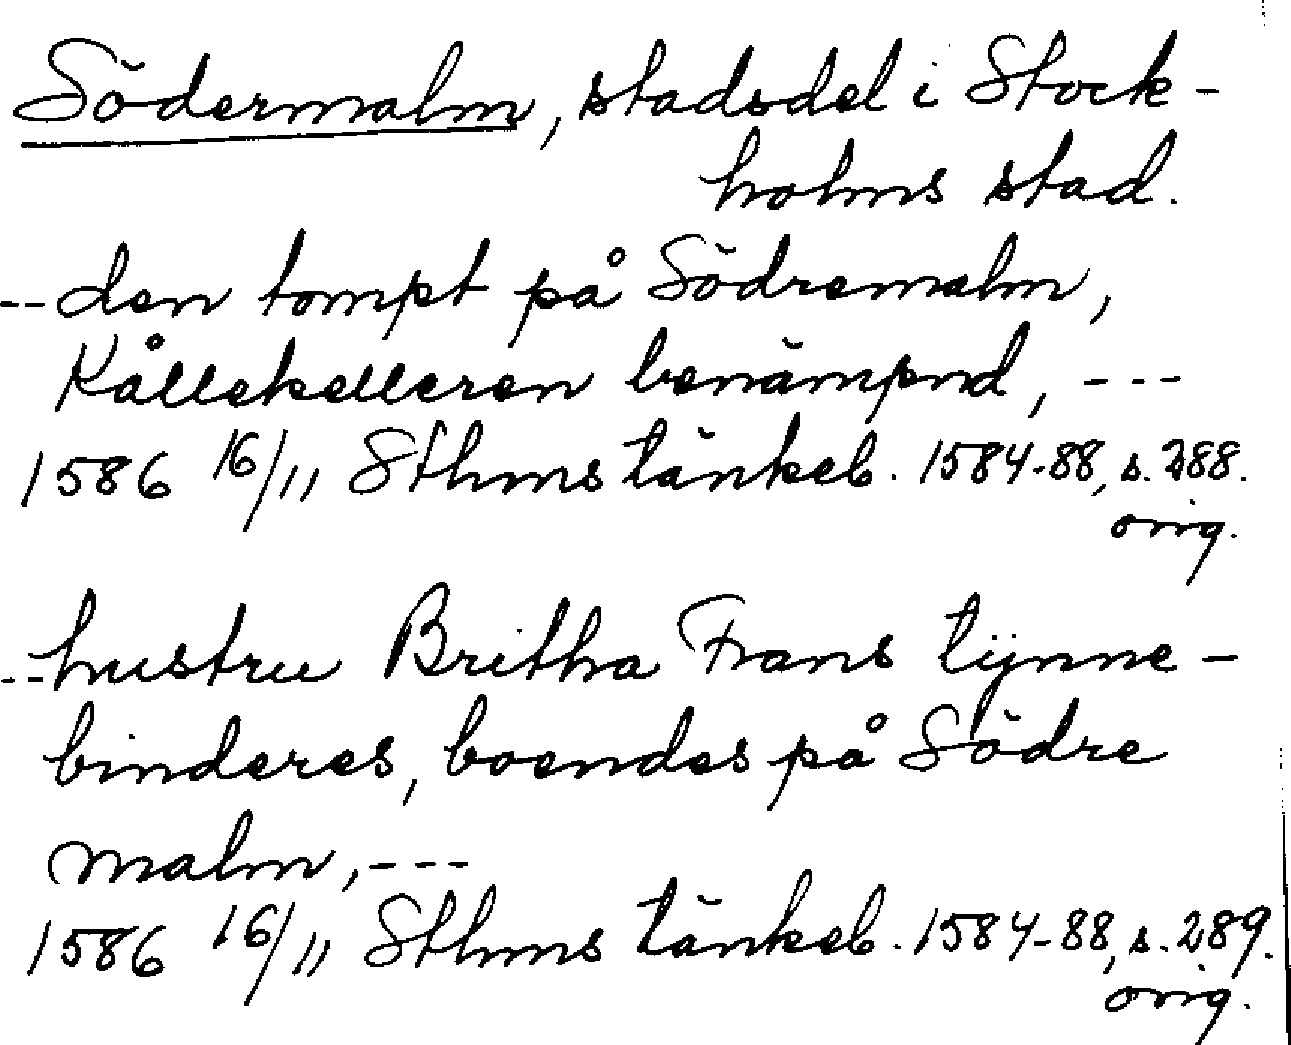 Södermalm, stadsdel i Stock-
holms stad.
-- den tompt på Södremalm,
Kållekelleren benämpnd, ---
1586 16/11 Sthms tänkeb. 1584-88, s. 288.
orig.
-- hustru Britha Frans tÿnne-
binderes, boendes på Södre
malm, ---
1586 16/11 Sthms tänkeb. 1584-88, s. 289.
orig.